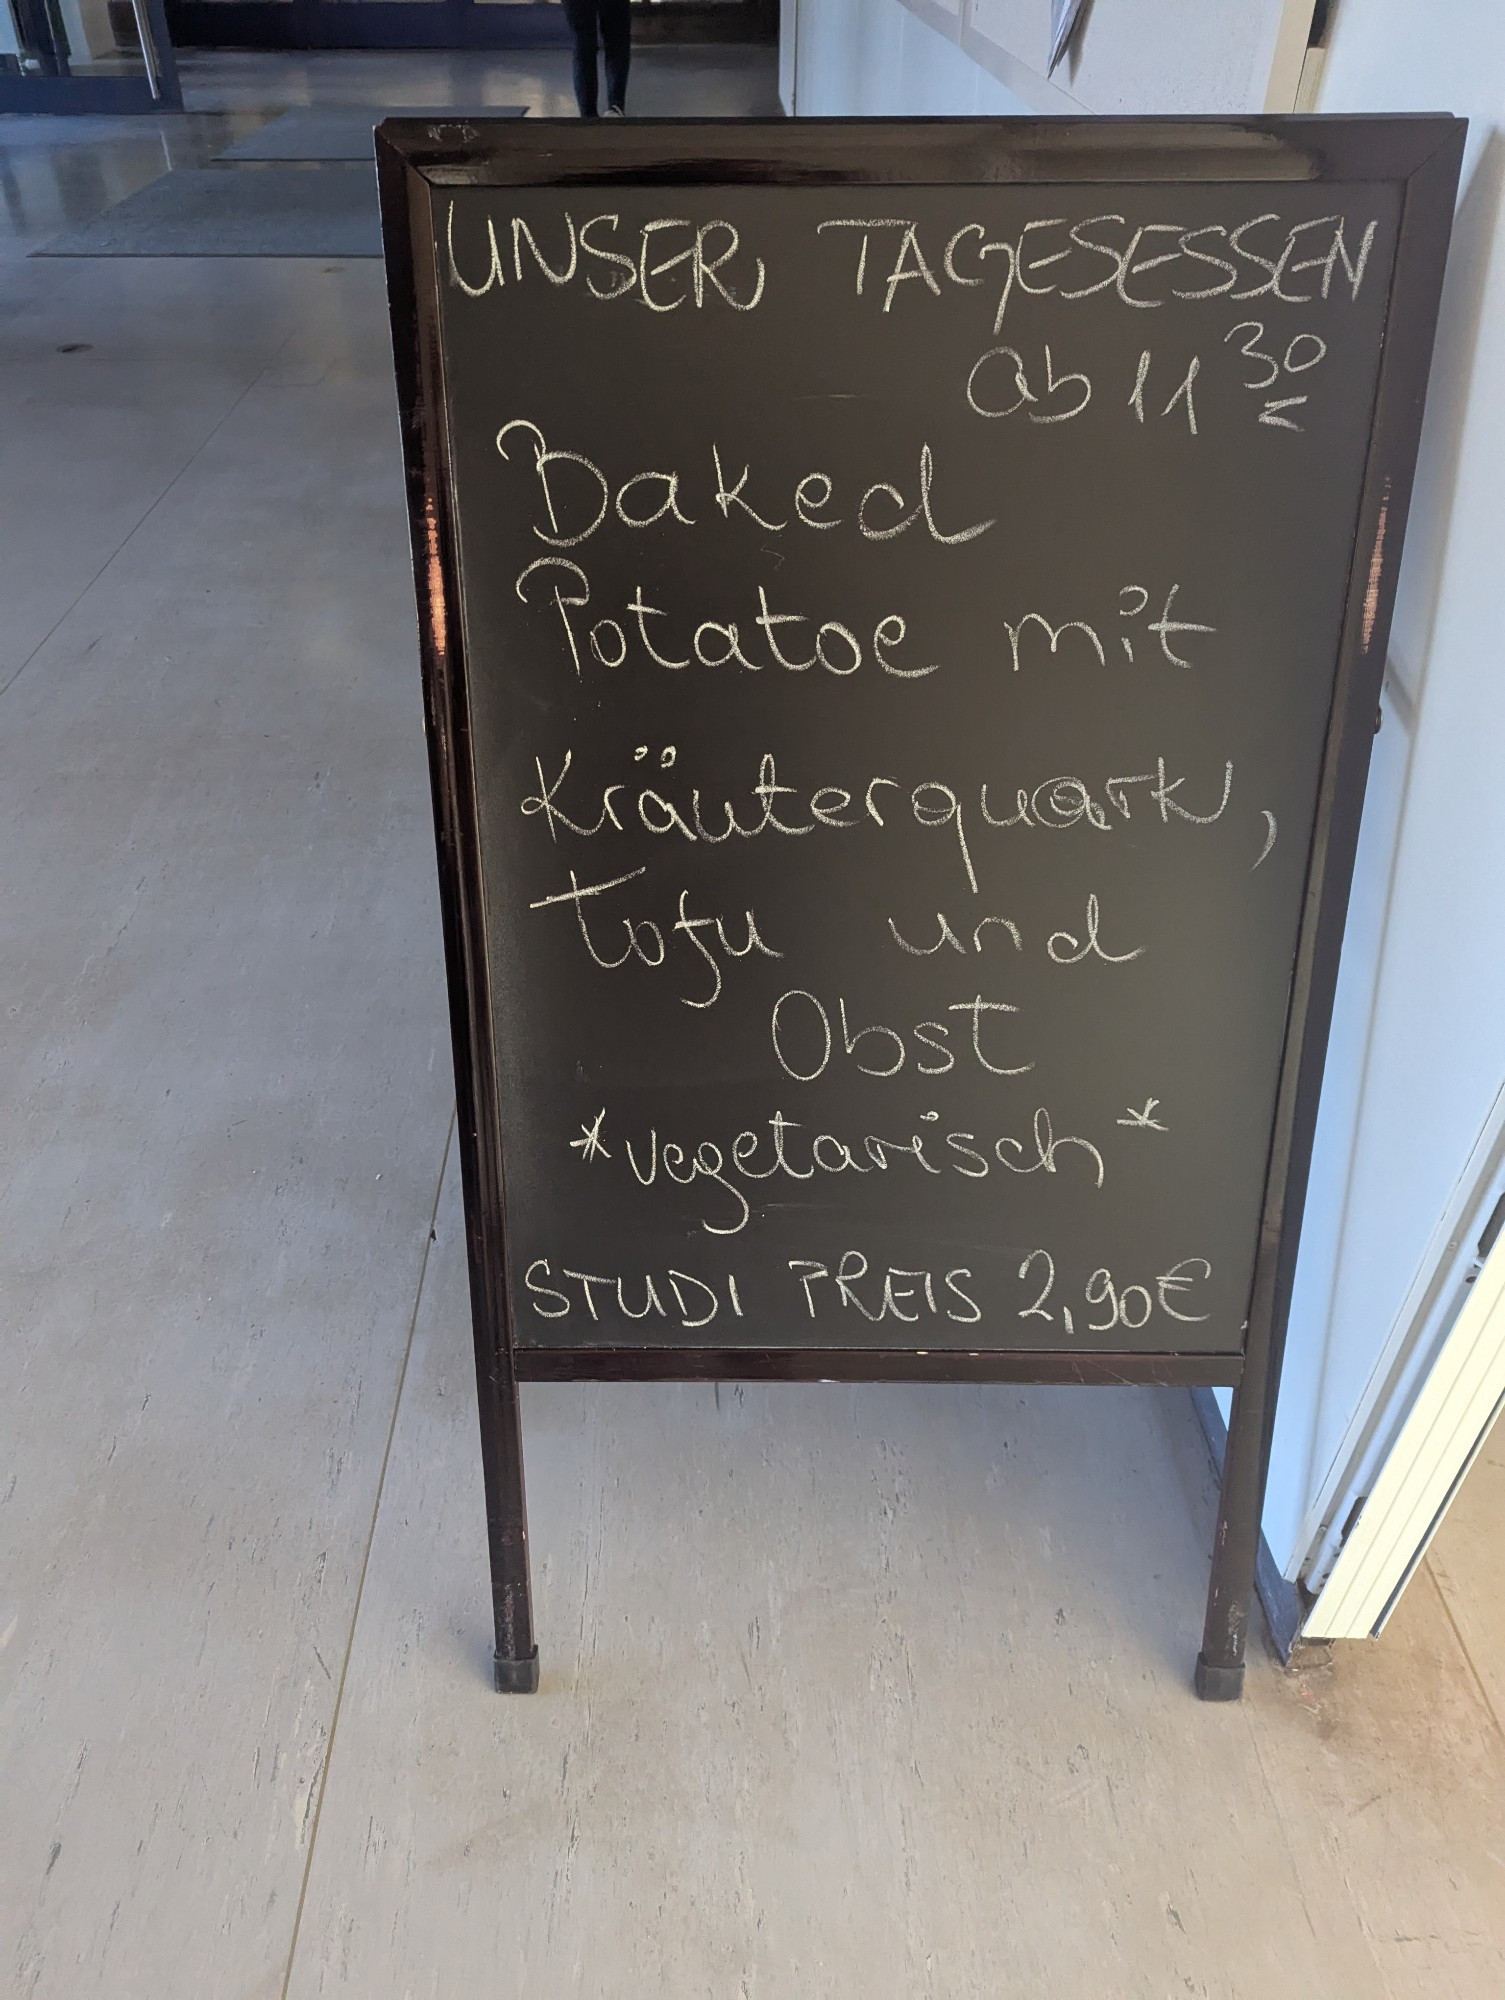 UNSER TAGESESSEN
ab 11 30
Baked
Potatoe mit
Kräuterquark,
Tofu und
Obst
*vegetarisch*
STUDI PREIS 2,90€